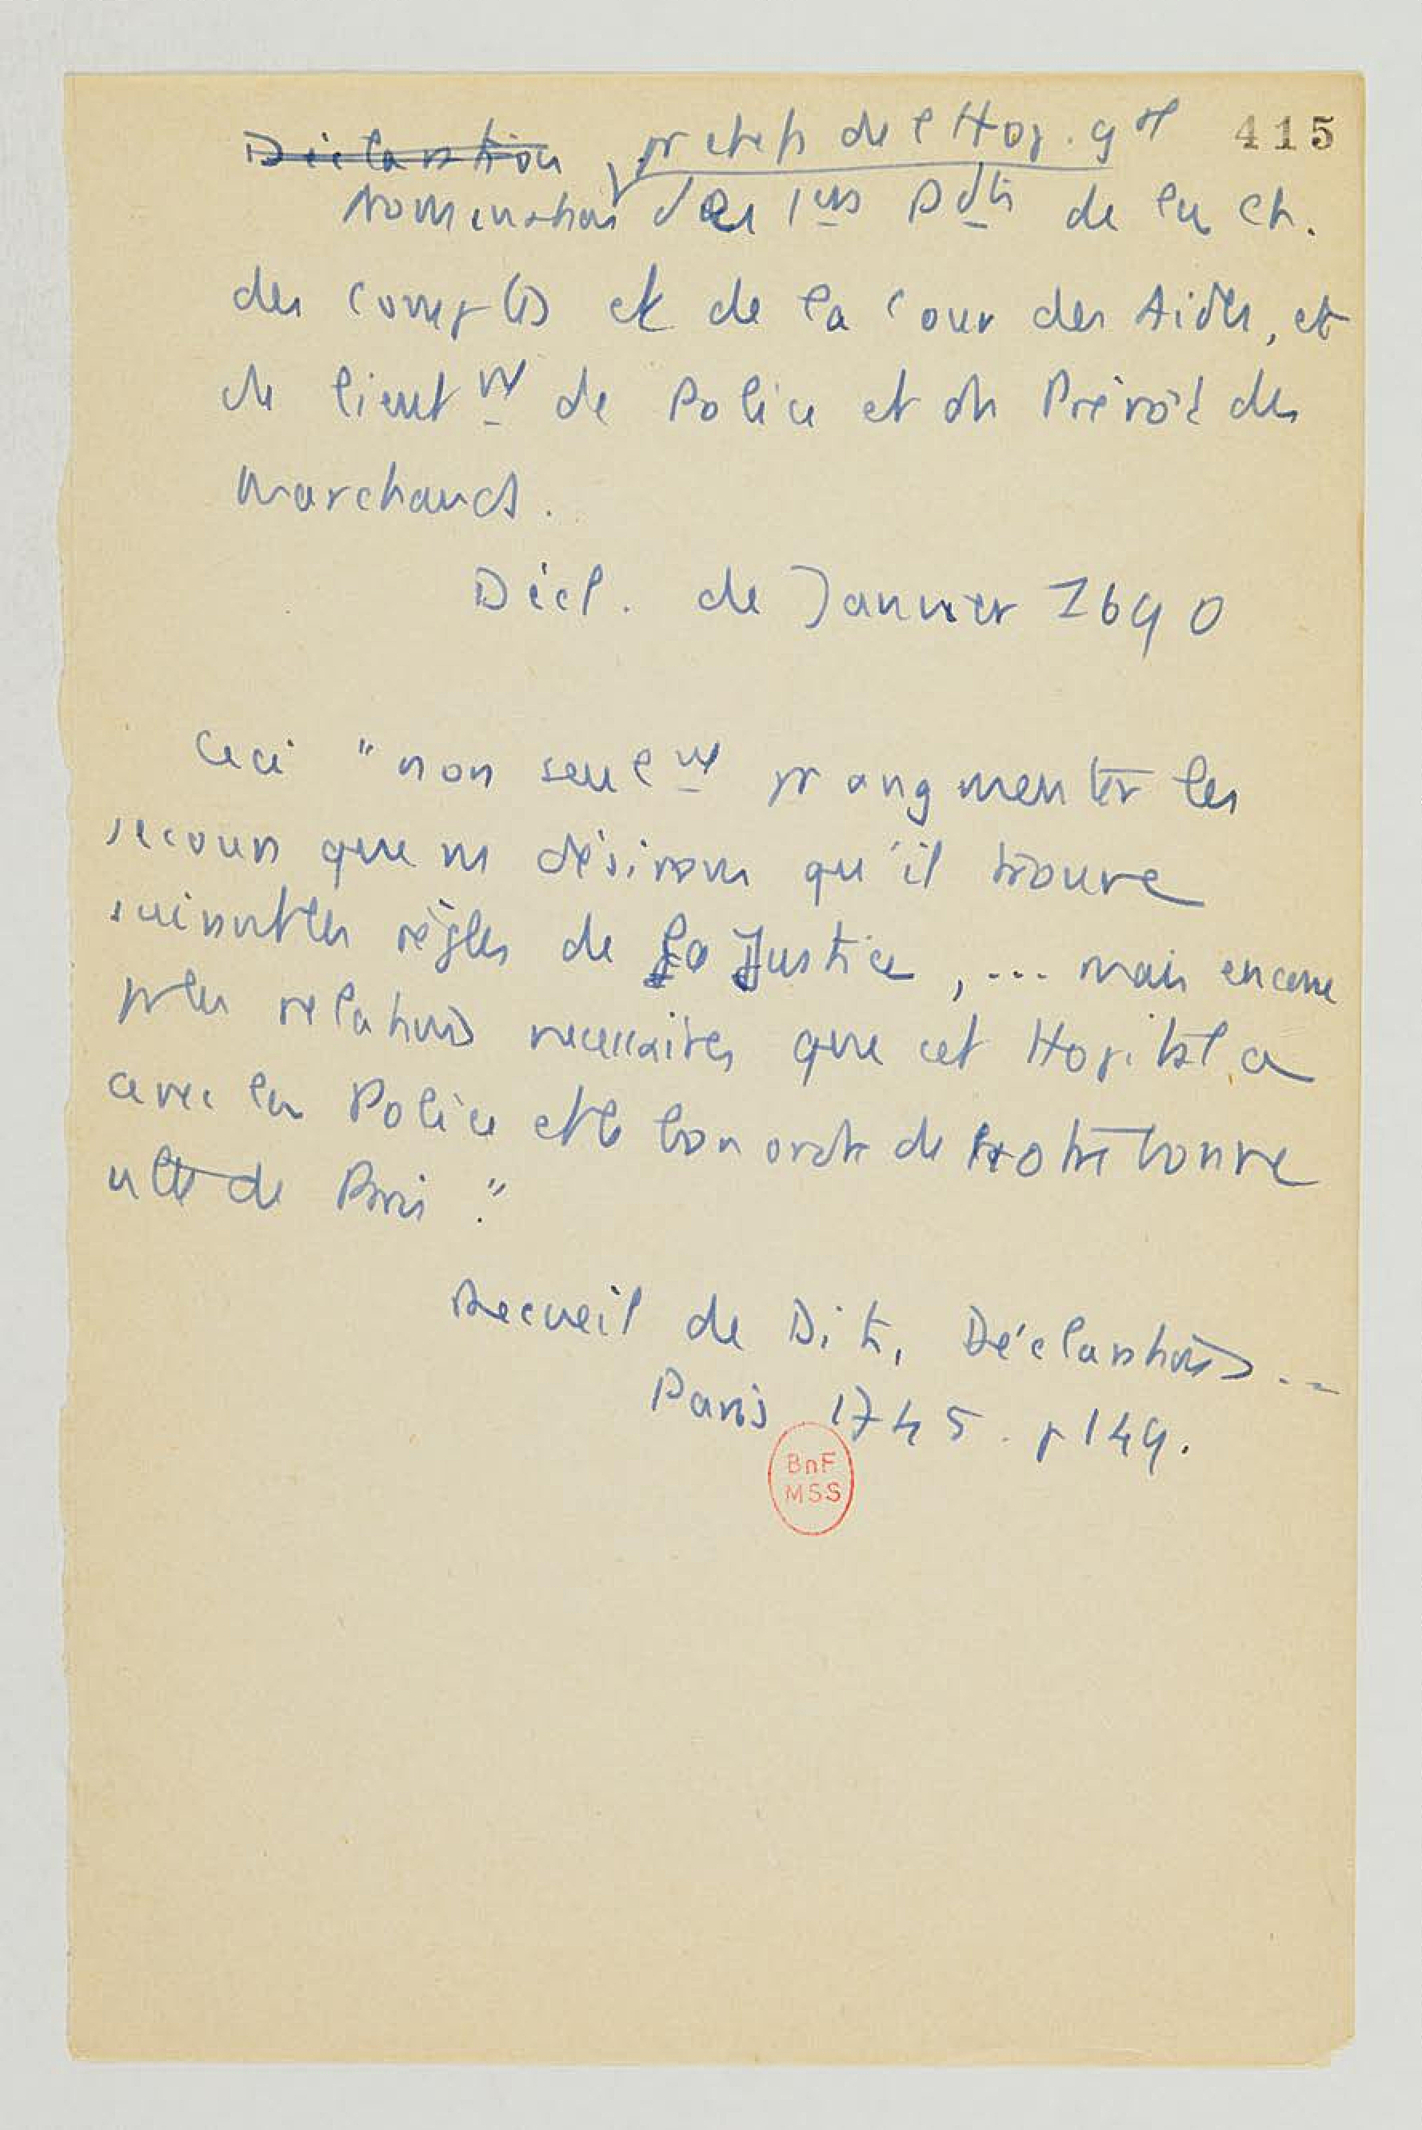 415
Déclaration pr chefs de l'Hop. gal
Nomination des 1ers Pdts de la Ch.
des Comptes et de la Cour des Aides, et
du lieutnt de Police et du Prévôt des
Marchands.
Décl. de Janvier 1690
Ceci "non seulmt pr augmenter les
secours que ns désirons qu'il trouve
suivant les règles de la Justice, ... mais encore
pr les relations necessaires que cet Hopital a
avec la Police et le bon ordre de notre bonne
ville de Paris."
Recueil de Dits, Déclarations...
Paris 1745. p 149.
BnF
MSS